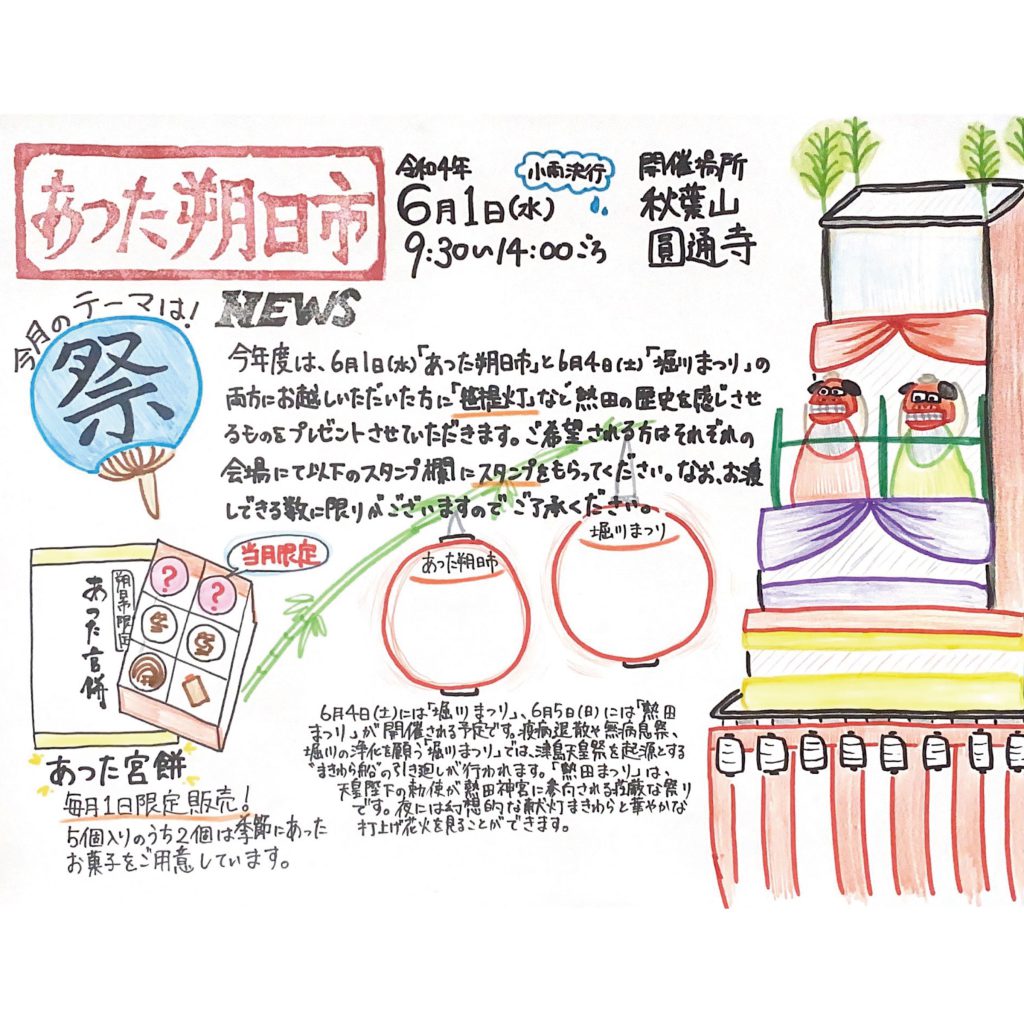 あった朔日市
令和4年
6月1日(水)
9:30〜14:00ごろ
小雨決行
開催場所
秋葉山
圓通寺
今月のテーマは!
祭
NEWS
今年度は、6月1日(水)「あった朔日市」と6月4日(土)「堀川まつり」の
両方にお越しいただいた方に「巻提灯」など熱田の歴史を感じさせ
るものをプレゼントさせていただきます。ご希望される方はそれぞれの
会場にて以下のスタンプ欄にスタンプをもらってください。なお、お渡
しできる数に限りがございますのでご了承ください。
あった朔日市
堀川まつり
当月限定
?
?
朔日市限定
あった宮餅
あった宮餅
毎月1日限定販売!
5個入りのうち2個は季節にあった
お菓子をご用意しています。
6月4日(土)には「堀川まつり」、6月5日(日)には「熱田
まつり」が開催される予定です。疫病退散や無病息災、
堀川の浄化を願う「堀川まつり」では、津島天皇祭を起源とする
"まきわら船"の引き廻しが行われます。「熱田まつり」は、
天皇陛下の勅使が熱田神宮に参向される荘厳な祭り
です。夜には幻想的な献灯まきわらと華やかな
打上げ花火を見ることができます。